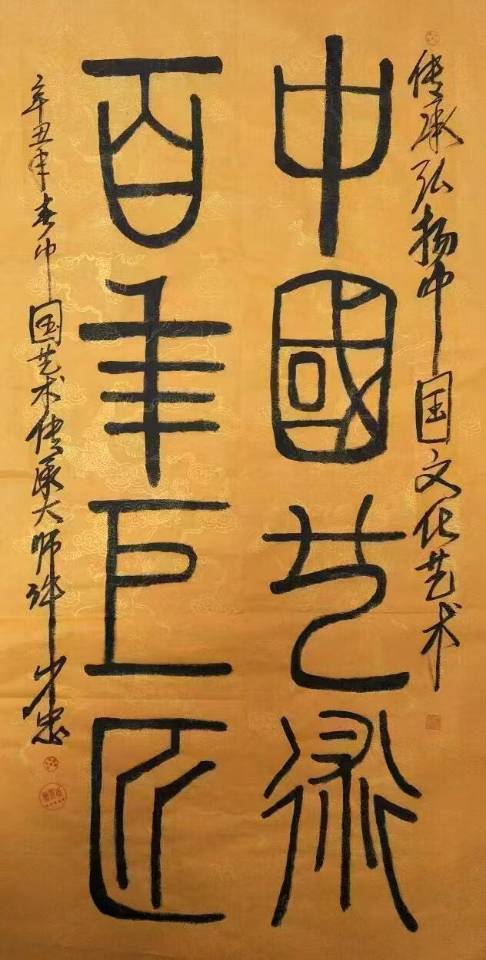 传承弘扬中国文化艺术
中國艺術
百年巨匠
辛丑年春中国艺术传承大师许忠